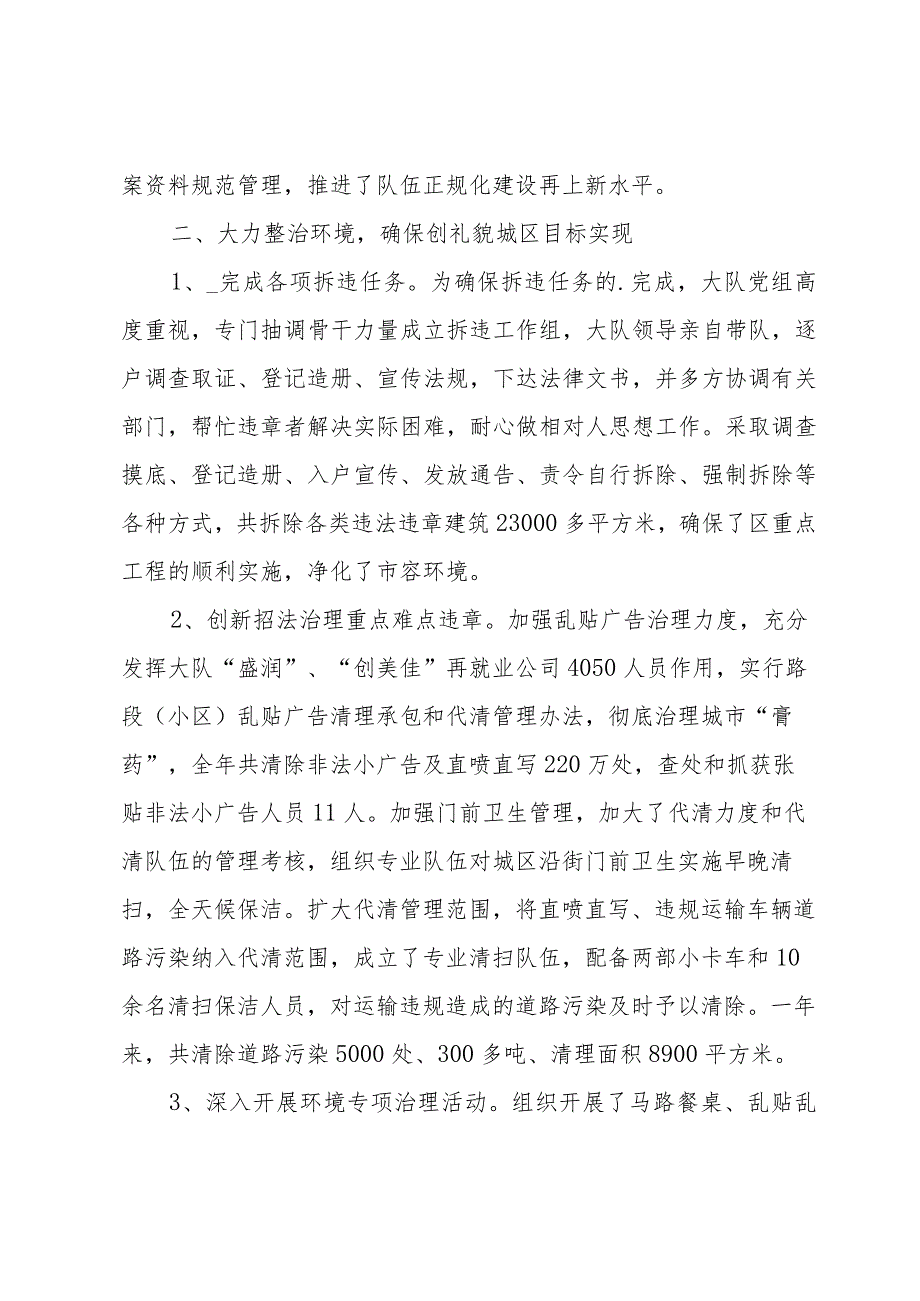 案资料规范管理，推进了队伍正规化建设再上新水平。
二、大力整治环境，确保创礼貌城区目标实现
1、_完成各项拆违任务。为确保拆违任务的.完成，大队党组高
度重视，专门抽调骨干力量成立拆违工作组，大队领导亲自带队，逐
户调查取证、登记造册、宣传法规，下达法律文书，并多方协调有关
部门，帮忙违章者解决实际困难，耐心做相对人思想工作。采取调查
摸底、登记造册、入户宣传、发放通告、责令自行拆除、强制拆除等
各种方式，共拆除各类违法违章建筑 23000 多平方米，确保了区重点
工程的顺利实施，净化了市容环境。
2、创新招法治理重点难点违章。加强乱贴广告治理力度，充分
发挥大队“盛润”、“创美佳”再就业公司 4050 人员作用，实行路
段（小区）乱贴广告清理承包和代清管理办法，彻底治理城市“膏
药”，全年共清除非法小广告及直喷直写 220 万处，查处和抓获张
贴非法小广告人员 11 人。加强门前卫生管理，加大了代清力度和代
清队伍的管理考核，组织专业队伍对城区沿街门前卫生实施早晚清
扫，全天候保洁。扩大代清管理范围，将直喷直写、违规运输车辆道
路污染纳入代清范围，成立了专业清扫队伍，配备两部小卡车和 10
余名清扫保洁人员，对运输违规造成的道路污染及时予以清除。一年
来，共清除道路污染 5000 处、300 多吨、清理面积 8900 平方米。
3、深入开展环境专项治理活动。组织开展了马路餐桌、乱贴乱